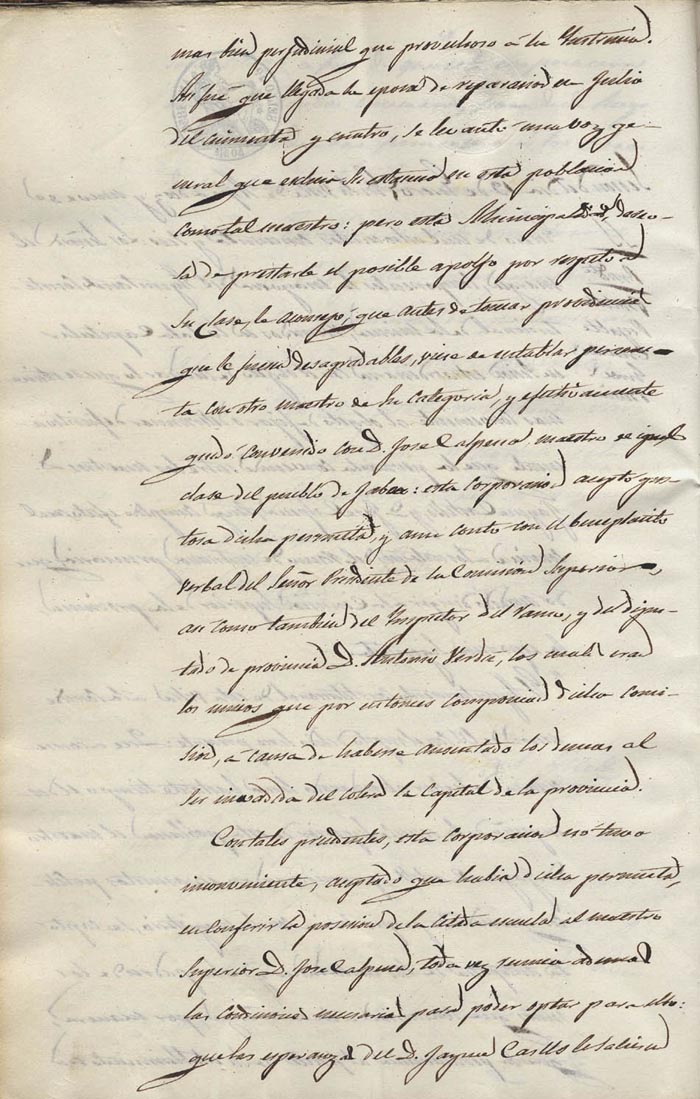 mas bien perjudicial que provechoso á la Instruccion.
Asi fué que llegada la epoca de reparacion en Julio
del cincuenta y cuatro, se levantó una voz ge-
neral que su estancia en esta poblacion
como tal maestro: pero esta Municipalidad, deseo-
sa de prestarle el posible apollo por respeto á
su clase, le aconsejó, que antes de tomar providencias
que le fuesen desagradables, viese de entablar permu-
ta con otro maestro de su categoria, y efectivamente
quedó convenido con D. Jose Calpena maestro de igual
clase del pueblo de Jabea: esta Corporacion acepto gus-
tosa dicha permuta, y aun conto con el beneplacito
verbal del Señor Presidente de la Comision Superior,
asi como tambien del Inspector del Ramo, y del dipu-
tado de provincia D. Antonio Verdú, los cuales eran
los unicos que por entonces componian dicha comi-
sion, á causa de haberse ausentado los demas al
ser invadida del colera la Capital de la provincia.
Con tales precedentes, esta Corporacion no tuvo
inconveniente, aceptado que habia dicha permuta,
en conferir la posesion de la citada escuela al maestro
Superior D. Jose Calpena, toda vez reunia ademas
las condiciones necesarias para poder optar para ello:
que las esperanzas del D. Jayme Casllo le salieron